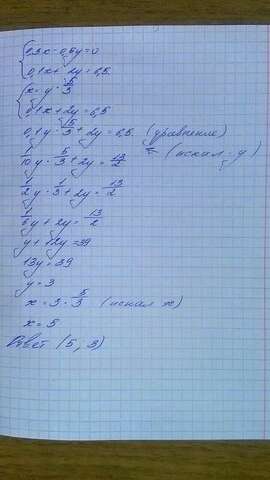 0,3x - 0,5y = 0
0,1x + 2y = 6,5.
x = y · 5/3
0,1x + 2y = 6,5
0,1y · 5/3 + 2y = 6,5. (уравнение)
1/10 y · 5/3 + 2y = 13/2 ← (искал y)
1/2 y · 1/3 + 2y = 13/2
1/6 y + 2y = 13/2
y + 12y = 39
13y = 39
y = 3
x = 3 · 5/3 (искал x)
x = 5
Ответ (5, 3)